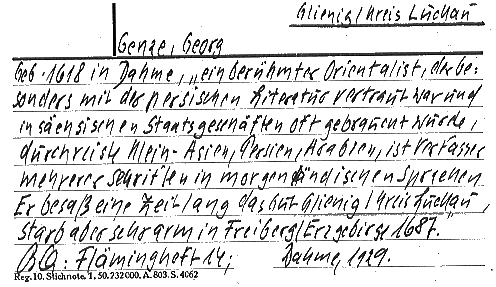 Glienig/Kreis Luckau
Genze, Georg
Geb. 1618 in Dahme, „ein berühmter Orientalist, der be-
sonders mit der persischen Literatur vertraut war und
in sächsischen Staatsgeschäften oft gebraucht wurde,
durchreiste Klein-Asien, Persien, Arabien, ist Verfasser
mehrerer Schriften in morgenländischen Sprachen
Er besaß eine Zeitlang das Gut Glienig/Kreis Luckau,
starb aber sehr arm in Freiberg/Erzgebirge 1687.
Flämingheft 14; Dahme, 1929.
Reg. 10. Stichnote. T. 50. 232000. A. 803. S. 4062